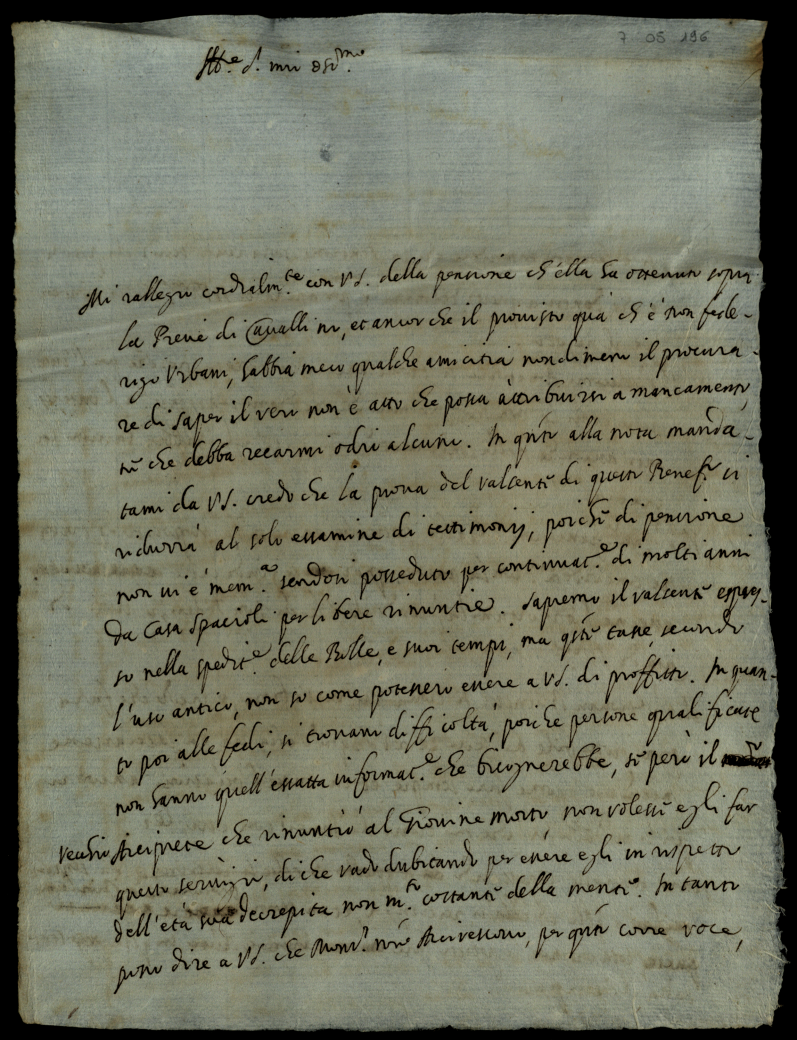 7 05 196
Ill.re S.r mio oss.mo
Mi rallegro cordialm.te con VS. della pensione ch'ella ha ottenuto sopra
la Pieve di Cavallino, et ancor che il provisto qua ch'è Don fede-
rigo Urbani, habbia meco qualche amicitia nondimeno il procura-
re di saper il vero non è atto che possa attribuirsi a mancamento,
nè che debba recarmi odio alcuno. In q.to alla nota manda-
tami da VS. credo che la prova del valsente di questo Benef.o si
ridurrà al solo essamine di testimonij, poiche di pensione
non vi è mem.a sendosi posseduto per continuac.e di molti anni
da Casa Spacioli per libere rinuntie. Sapremo il valsente espres-
so nella spedit.e delle Bolle, e suoi tempi, ma q.te tasse, secondo
l'uso antico, non so come potessero essere a VS. di proffitto. In quan-
to poi alle fedi, si trovano difficoltà, poiche persone qualificate
non hanno quell'essatta informac.e che bisognerebbe, se però il
vecchio Arciprete che rinuntiò al Giovine morto non volesse egli far
questo servigio, di che vado dubitando per essere egli in rispetto
dell'età sua decrepita non m.to costante della mente. In tanto
posso dire a VS. che Mons.r n.ro Arcivescovo, per q.to corre voce,